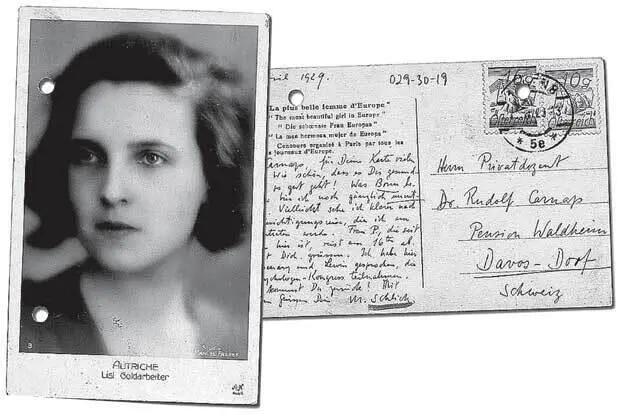 AUTRICHE
Lisl Goldarbeiter
3
ril 1929.
029-30-19
La plus belle femme d'Europe"
"The most beautiful girl in Europe"
"Die schoenste Frau Europas"
"La mas hermosa mujer de Europa"
Concours organisé à Paris par tous les
journaux d'Europe.
arnap, für Deine Karte vielen
Wie schön, dass es Dir gesund-
so gut geht! Was Bonn be-
bin ich noch gänzlich unent-
Vielleicht sehe ich klarer nach
ichtigungsreise, die ich am
treten werde. Frau P., die seit
hier ist, reist am 16ten ab.
Dich grüssen. Ich habe hier
und Lewin gesprochen, die
ychologen-Kongress teilnahmen.
kommst Du zurück? Mit
grüssen Dein M. Schlick
Herrn Privatdozent
Dr. Rudolf Carnap
Pension Waldheim
Davos-Dorf
Schweiz